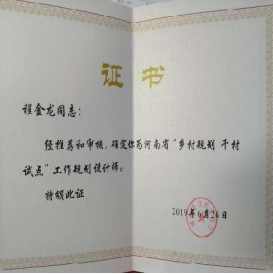 证书
程金龙同志：
经推荐和审核，确定你为河南省“乡村规划 千村
试点”工作规划设计师。
特颁此证
2019年6月26日